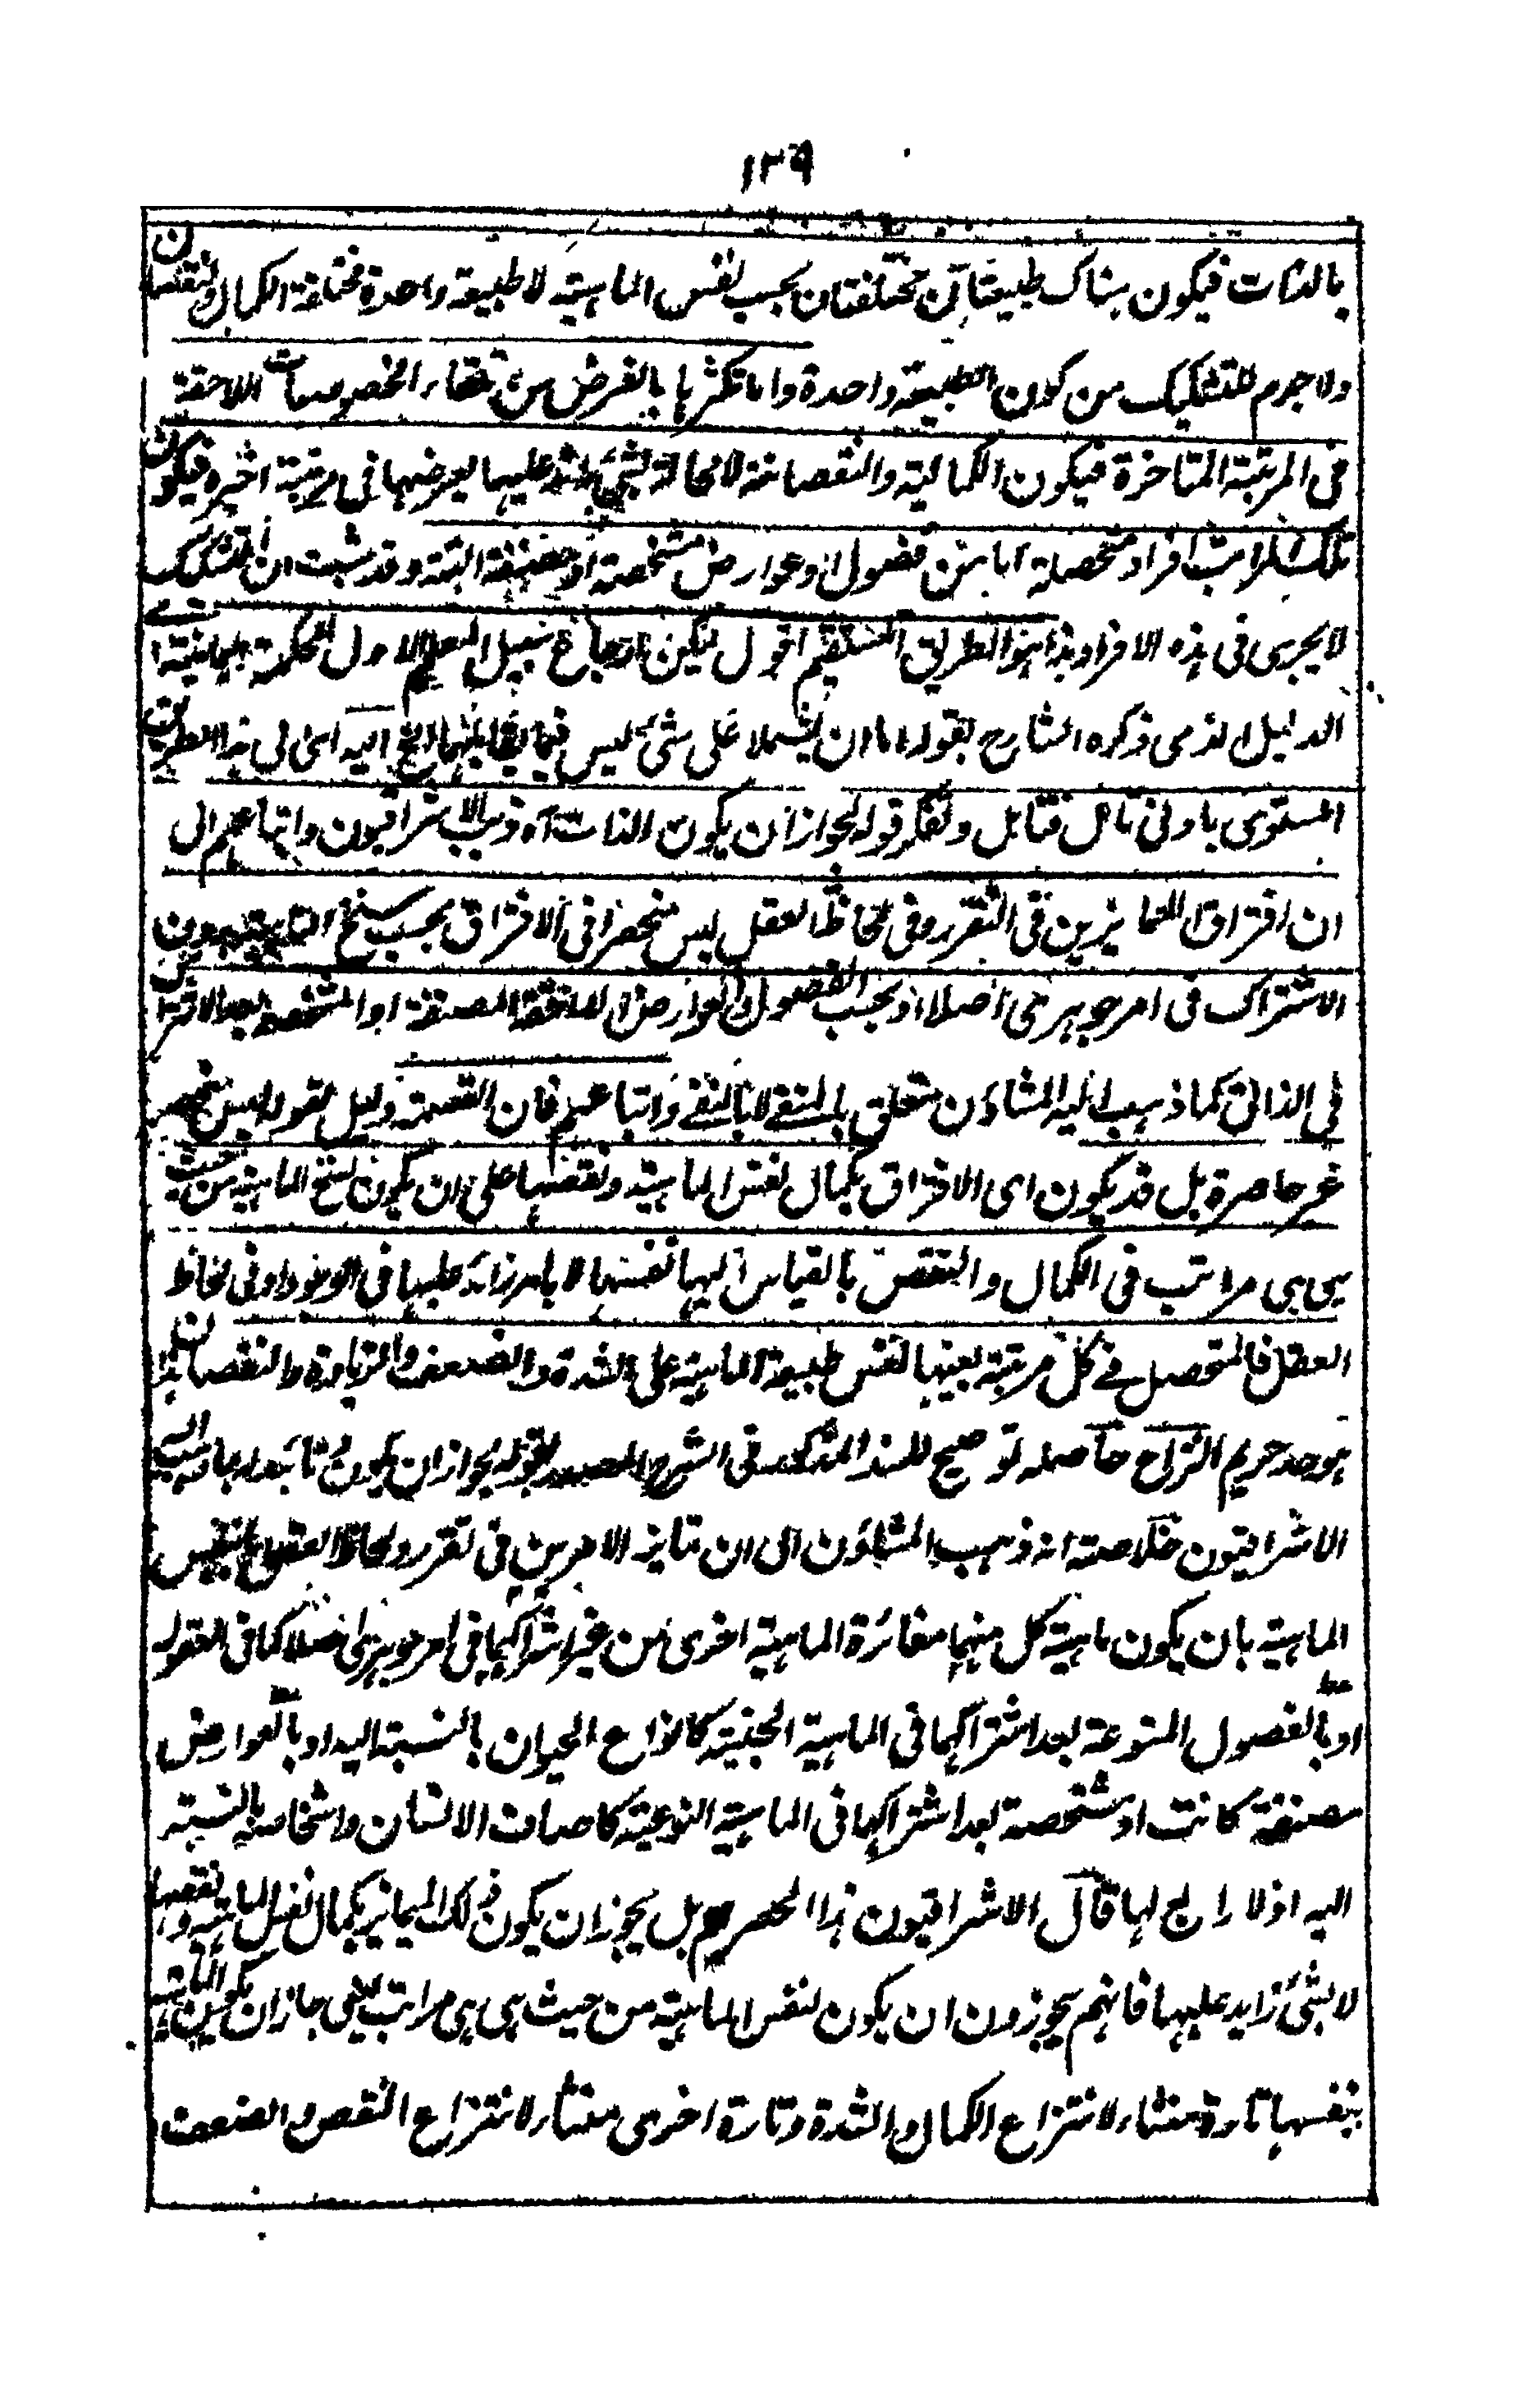 ١٣٩
بالذات فيكون هناك طبيعتان مختلفتان بحسب نفس الماهية لا طبيعة واحدة مختلفة الكمال والنقصان
ولا جرم للتشكيك من كون الطبيعة واحدة واما تكثرها بالعرض من تلقاء الخصوصيات اللاحقة
فى المرتبة المتاخرة فيكون الكمالية والنقصانية لا محالة لشئ زائد عليها يعرضها فى مرتبة اخيرة فيكون
تلك المراتب افرادا متحصلة اما من فصول او عوارض مشخصة او مصنفة البتة وقد ثبت ان التشكيك
لا يجرى فى هذه الافراد هذا هو الطريق المستقيم اقول ليكن ارجاع سبيل المعلم الاول للحكمة اليمانية
الدليل الذى ذكره الشارح بقوله اما ان يشملا على شئ ليس فيما يقابلهما الخ اليه اى الى هذا الطريق
المستوى باونى تامل فتامل وتفكر قوله لجواز ان يكون الذات اه ذهب الاشراقيون واتباعهم الى
ان افتراق المتمايزين فى التقرر وفى لحاظ العقل ليس منحصرا فى الافتراق بحسب سنخ الماهية بدون
الاشتراك فى امر جوهرى اصلا او بحسب الفصول او العوارض اللاحقة المصنفة او المشخصة بعد الاشتراك
فى الذاتى كما ذهب اليه المشاؤن متعلق بالمنفى لا بالنفى واتباعهم فان القسمة دليل لقوله ليس منحصرا
غير حاصرة بل قد يكون اى الافتراق بكمال نفس الماهية ونقصها على ان يكون لسنخ الماهية من حيث
هى هى مراتب فى الكمال والنقص بالقياس اليها نفسها لا بامر زائد عليها فى الوجود او فى لحاظ
العقل فالمتحصل فى كل مرتبة بعينها نفس طبيعة الماهية على الشدة والضعف والزيادة والنقصان هذا
هو حد حريم النزاع حاصله توضيح للسند المذكور فى الشرح المصدر بقوله لجواز ان يكون تائيدا بما ذهب اليه
الاشراقيون خلاصته انه ذهب المشاؤن الى ان تمايز الامرين فى تقرر ولحاظ العقل اما بنفس
الماهية بان يكون ماهية كل منهما مغائرة الماهية اخرى من غير اشتراكهما فى امر جوهرى اصلا كما فى المقولات
او بالفصول المنوعة بعد اشتراكهما فى الماهية الجنسية كانواع الحيوان بالنسبة اليه او بالعوارض
مصنفة كانت او مشخصة بعد اشتراكها فى الماهية النوعية كاصناف الانسان واشخاصه بالنسبة
اليه اذ لا رابع لها قال الاشراقيون هذا الحصر بل يجوز ان يكون ذلك التمايز بكمال نفس الماهية ونقصها
لا بشئ زايد عليها فانهم يجوزون ان يكون لنفس الماهية من حيث هى هى مراتب يعنى جاز ان يكون الماهية
بنفسها تارة منشاء لانتزاع الكمال والشدة وتارة اخرى منشاء لانتزاع النقص والضعف